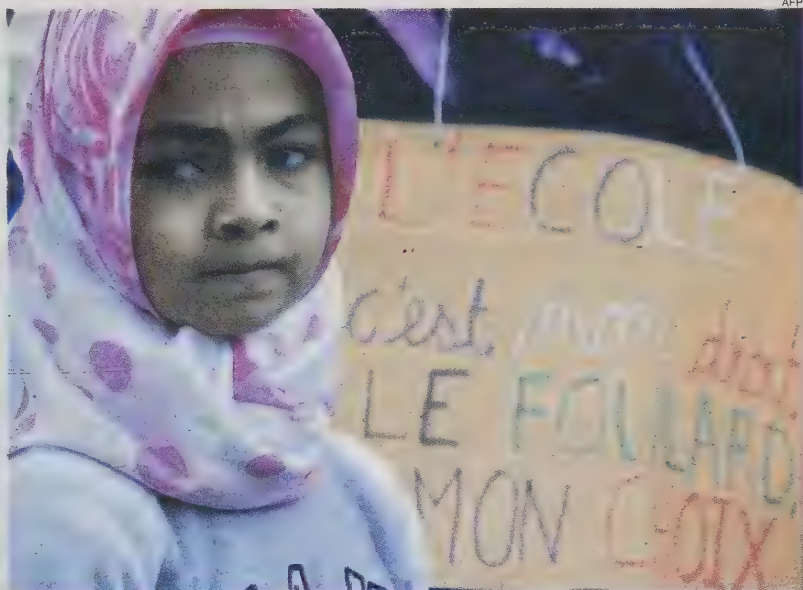 AFP
L'ECOLE
c'est mon droit
LE FOULARD
MON CHOIX